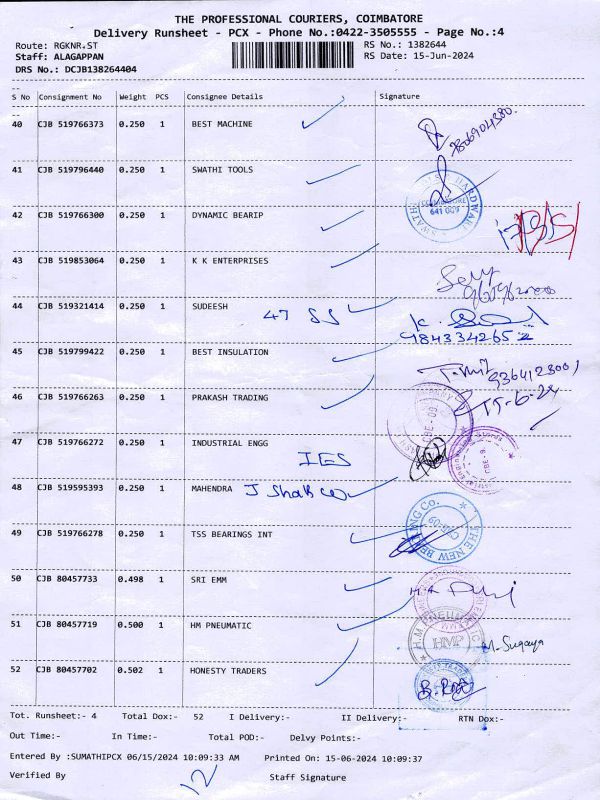 THE PROFESSIONAL COURIERS, COIMBATORE
Delivery Runsheet - PCX - Phone No.:0422-3505555 - Page No.:4
Route: RGKNR.ST RS No.: 1382644
Staff: ALAGAPPAN RS Date: 15-Jun-2024
DRS No.: DCJB138264404
S No Consignment No Weight PCS Consignee Details Signature
40 CJB 519766373 0.250 1 BEST MACHINE
41 CJB 519796440 0.250 1 SWATHI TOOLS
641 009
42 CJB 519766300 0.250 1 DYNAMIC BEARIP
43 CJB 519853064 0.250 1 K K ENTERPRISES
44 CJB 519321414 0.250 1 SUDEESH 47 SS
9843342652
45 CJB 519799422 0.250 1 BEST INSULATION
46 CJB 519766263 0.250 1 PRAKASH TRADING 15-6-24
47 CJB 519766272 0.250 1 INDUSTRIAL ENGG
IES
48 CJB 519595393 0.250 1 MAHENDRA
49 CJB 519766278 0.250 1 TSS BEARINGS INT THE NEW BEARING Co.
50 CJB 80457733 0.498 1 SRI EMM
51 CJB 80457719 0.500 1 HM PNEUMATIC H.M. PNEUMATIC HMP M. Sugaya
52 CJB 80457702 0.502 1 HONESTY TRADERS
Tot. Runsheet:- 4 Total Dox:- 52 I Delivery:- II Delivery:- RTN Dox:-
Out Time:- In Time:- Total POD:- Delvy Points:-
Entered By :SUMATHIPCX 06/15/2024 10:09:33 AM Printed On: 15-06-2024 10:09:37
Verified By Staff Signature
12